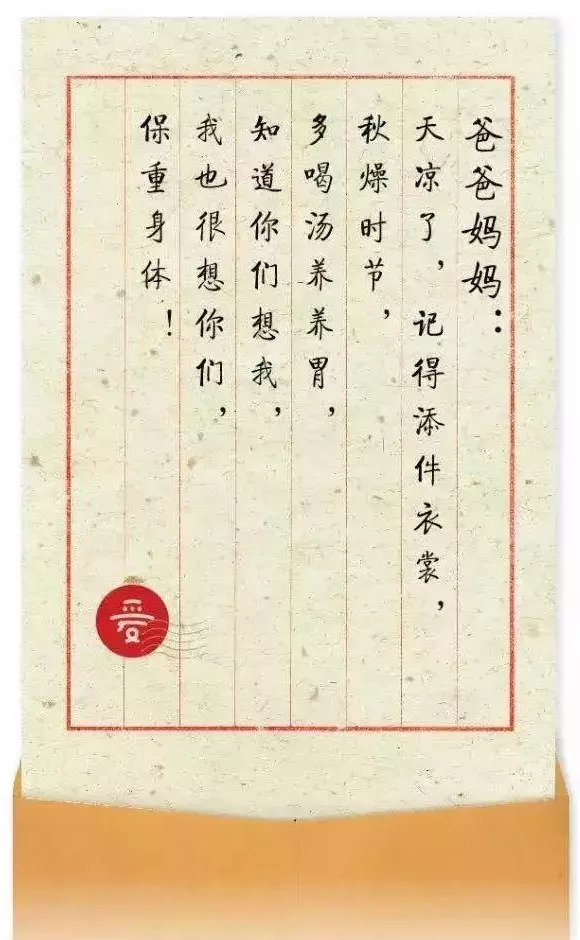 爸爸妈妈：
天凉了，记得添件衣裳，
秋燥时节，
多喝汤养养胃，
知道你们想我，
我也很想你们，
保重身体！
爱